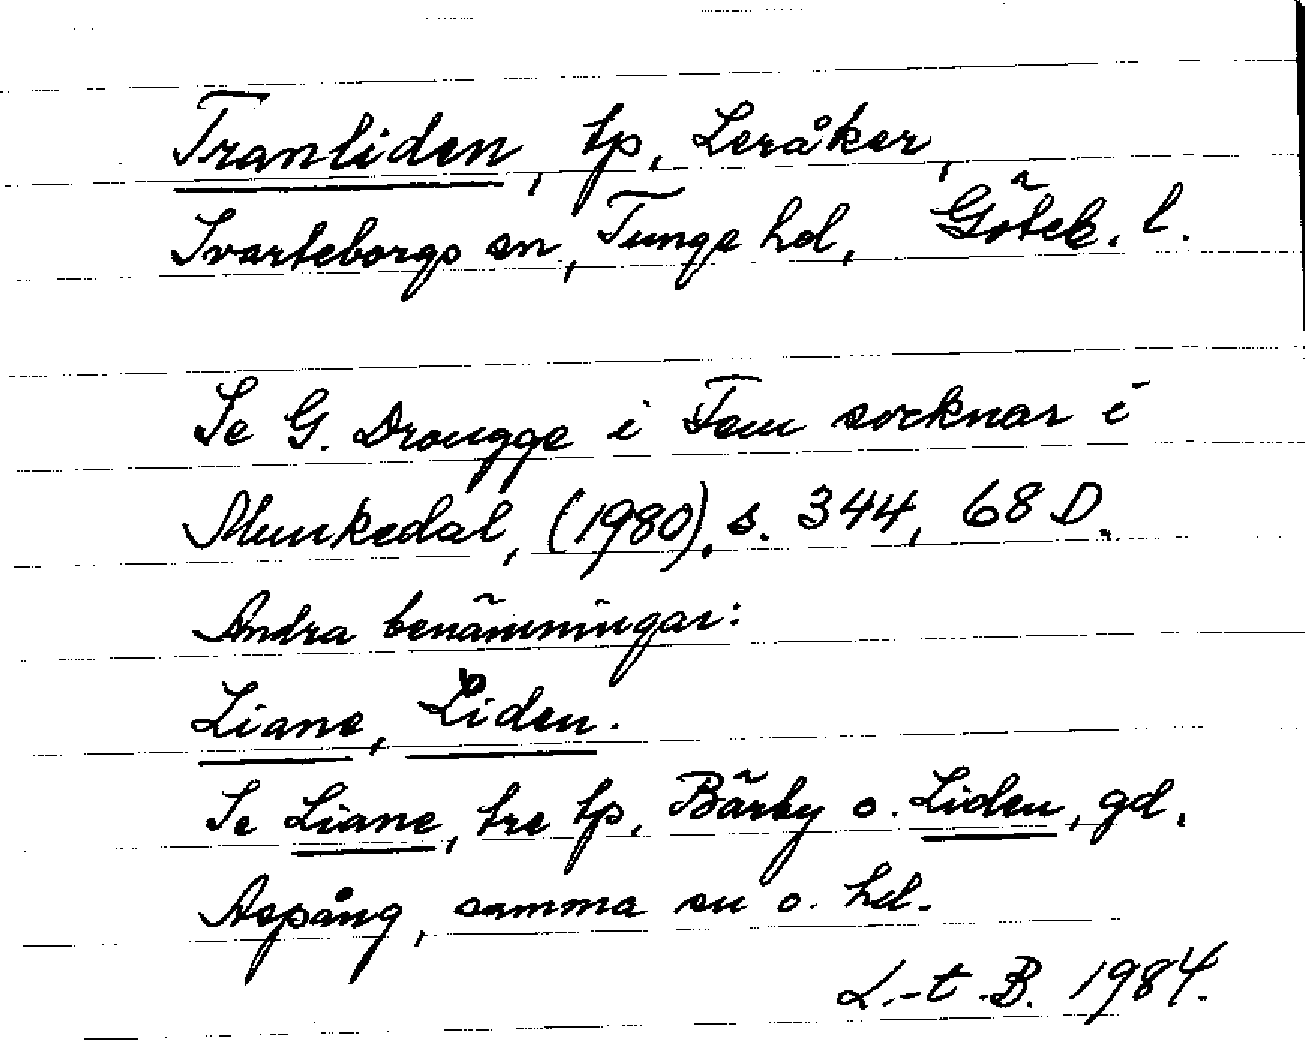 Tranliden, tp, Leråker,
Svarteborgs sn, Tunge hd, Göteb. l.
Se G. Drougge i Fem socknar i
Munkedal, (1980), s. 344, 68 D.
Andra benämningar:
Liane, Liden.
Se Liane, tre tp, Bärby o. Liden, gd,
Aspång, samma sn o. hd.
L.-t. B. 1984.